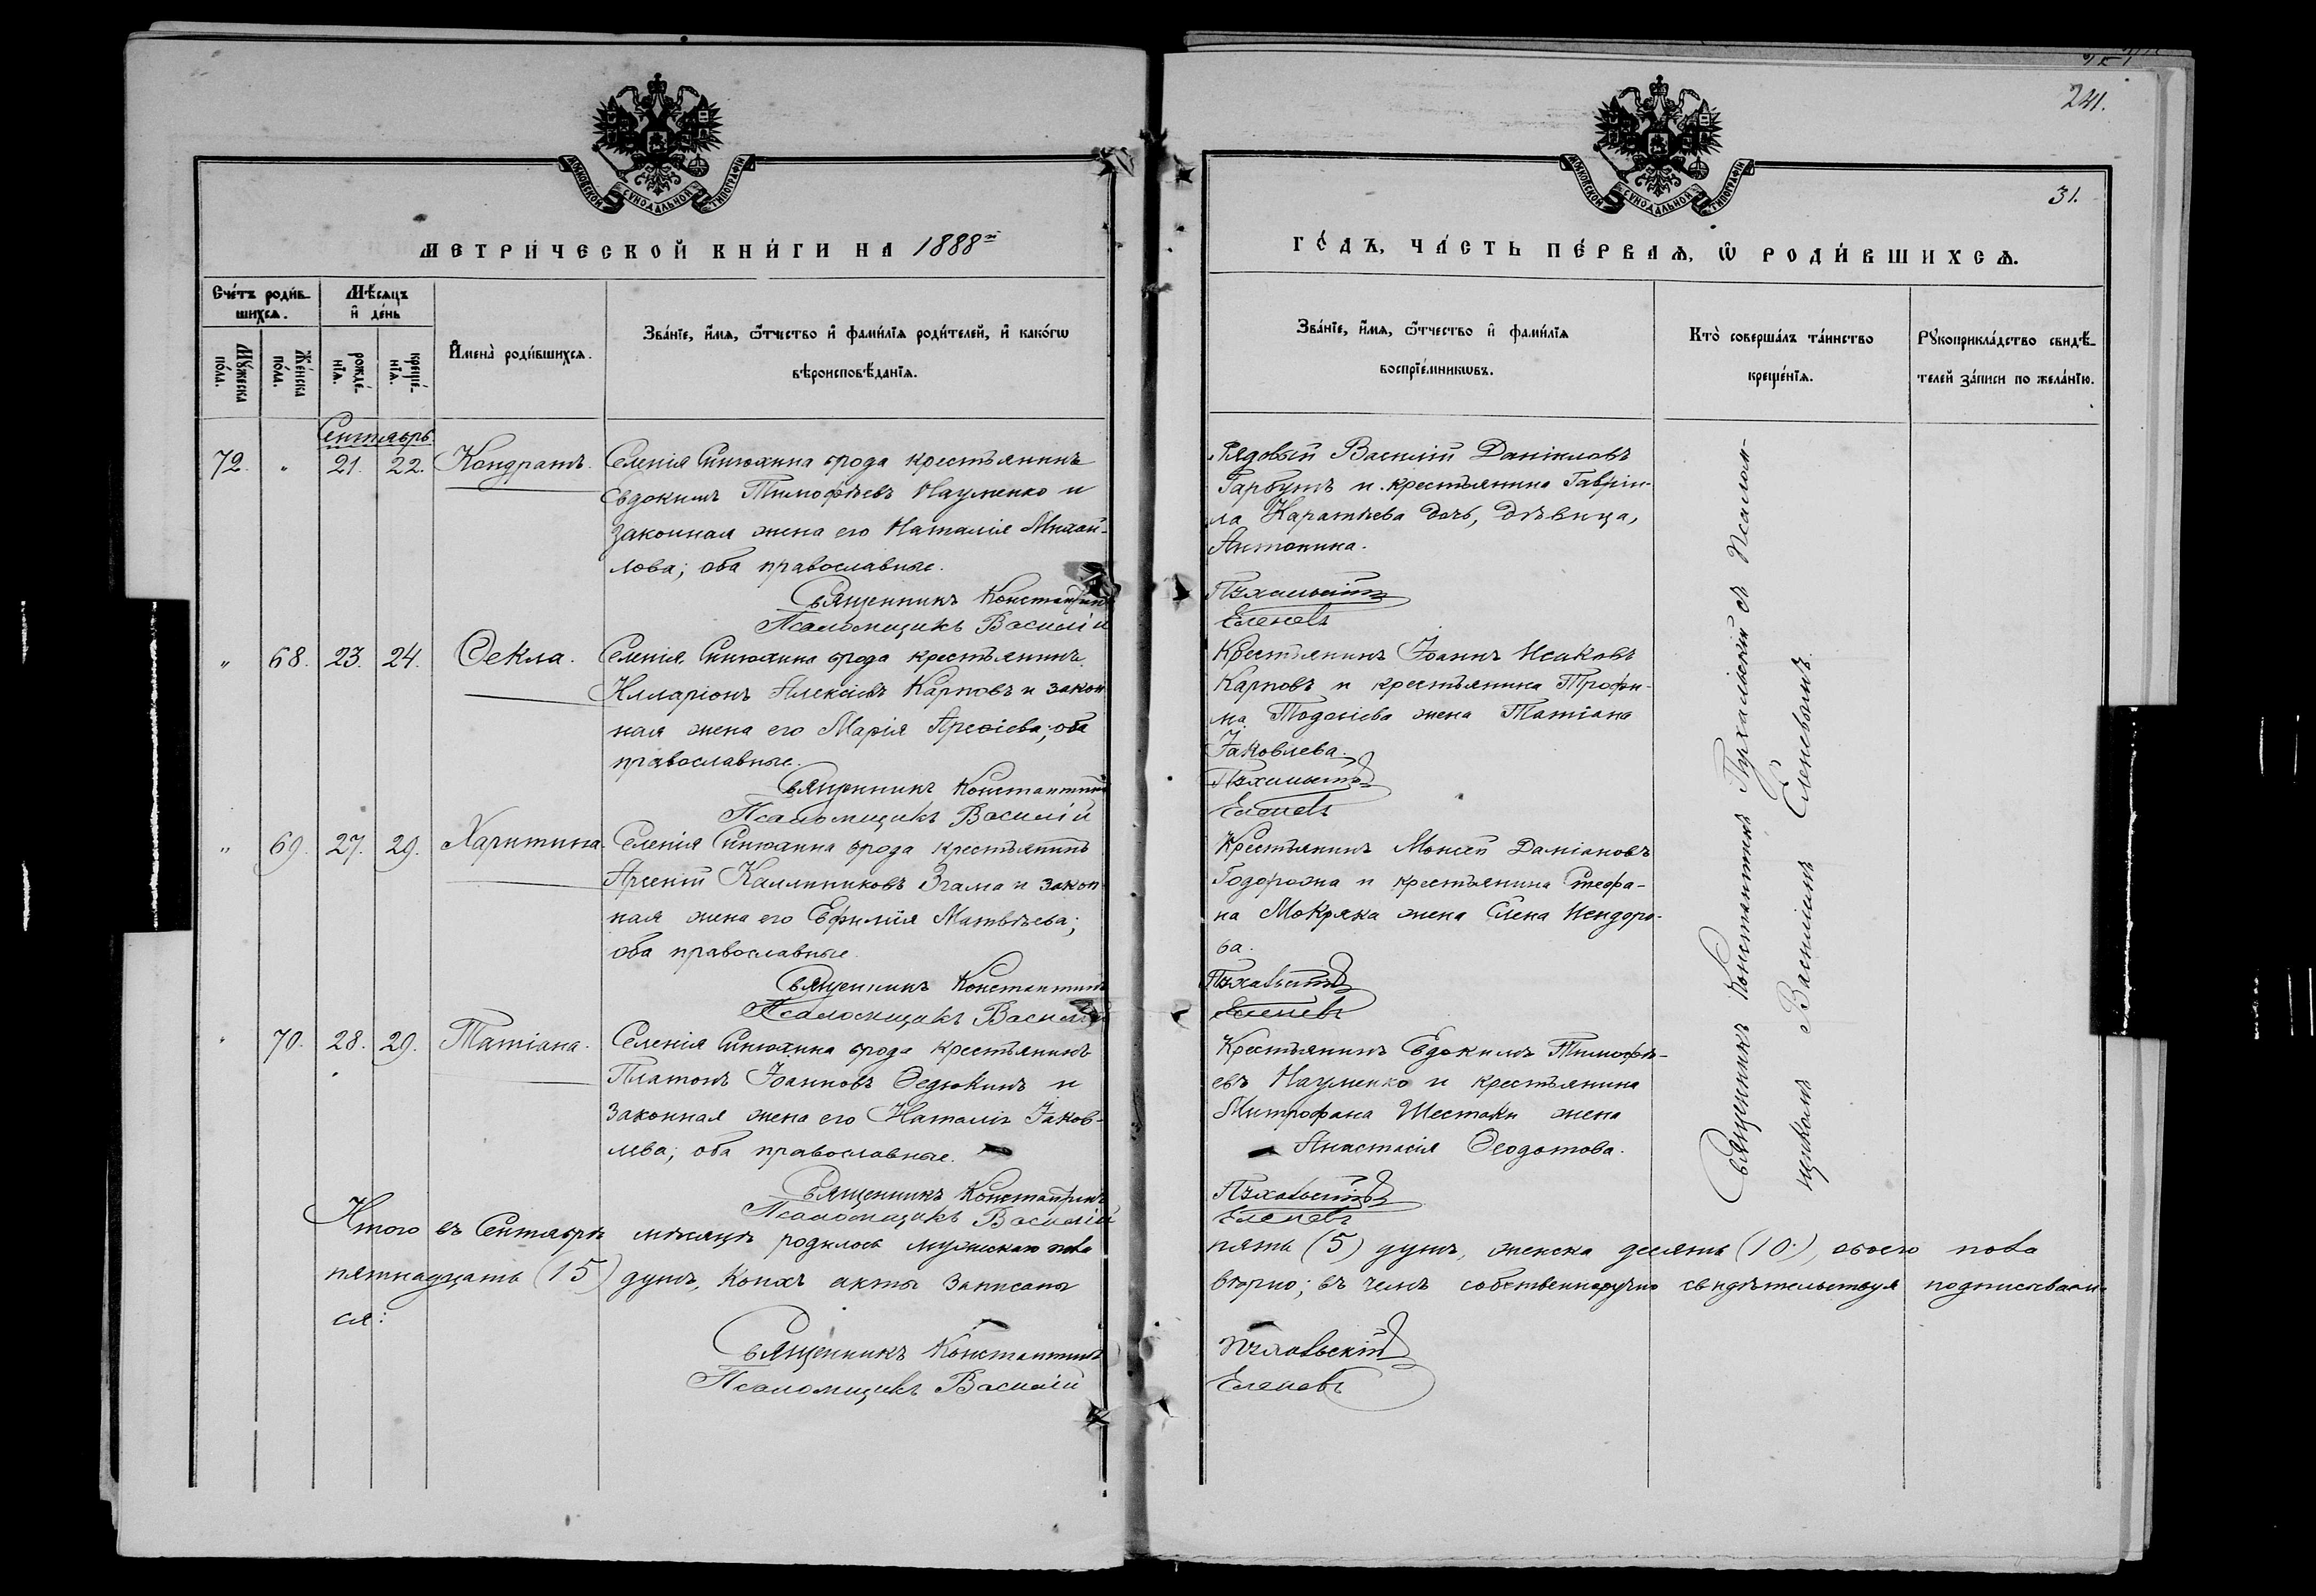 241.
31.
МОСКОВСКОЙ СѴНОДАЛЬНОЙ ТИПОГРАФІИ
МЕТРИ́ЧЕСКОЙ КНИ́ГИ НА 1888й
Сче́тъ роди́в-
шихсѧ.
Мѣ́сѧцъ
и҆ де́нь
Мꙋ́жеска
по́ла.
Же́нска
по́ла.
рожде́-
нїѧ.
креще́-
нїѧ.
И҆мена̀ роди́вшихсѧ.
Зва́нїе, и҆́мѧ, ѻ҆́тчество и҆ фами́лїѧ роди́телей, и҆ како́гѡ
вѣроисповѣ́данїѧ.
Сентябрь
72. " 21. 22. Кондратъ. Селенія Синюхина брода крестьянинъ
Евдокимъ Тимофѣевъ Науменко и
законная жена его Наталія Михай-
лова; оба православные.
Священникъ Константинъ
Псаломщикъ Василій
" 68. 23. 24. Ѳекла. Селенія Синюхина брода крестьянинъ
Илларіонъ Алексѣевъ Карповъ и закон
ная жена его Марія Арсѣіева; оба
православные.
Священникъ Константинъ
Псаломщикъ Василій
" 69. 27. 29. Харитина. Селенія Синюхина брода крестьянинъ
Арсеній Каллиниковъ Згама и закон
ная жена его Евфимія Матвѣева;
оба православные.
Священникъ Константинъ
Псаломщикъ Василій
" 70. 28. 29. Татіана. Селенія Синюхина брода крестьянинъ
Платонъ Іоанновъ Ѳедюкинъ и
законная жена его Наталія Іаков-
лева; оба православные.
Священникъ Константинъ
Псаломщикъ Василій
Итого въ Сентябрѣ мѣсяцѣ родилось мужескаго пола
пятнадцать (15) душъ, коихъ акты записаны
ся:
Священникъ Константинъ
Псаломщикъ Василій
МОСКОВСКОЙ СѴНОДАЛЬНОЙ ТИПОГРАФІИ
ГО́ДЪ, ЧА́СТЬ ПЕ́РВАѦ, Ѽ РОДИ́ВШИХСѦ.
Зва́нїе, и҆́мѧ, ѻ҆́тчество и҆ фами́лїѧ
воспрїе́мникѡвъ.
Кто̀ соверша́лъ та́инство
креще́нїѧ.
Рꙋкоприкла́дство свидѣ́-
телей за́писи по жела́нїю.
Рядовый Василій Даніиловъ
Гарбузъ и крестьянина Гаврiи-
ла Каратѣева дочь, дѣвица,
Антонина.
Пѣхальскій
Еленевъ
Крестьянинъ Іоаннъ Исаковъ
Карповъ и крестьянина Трофи-
ма Тодосіева жена Татіана
Іаковлева.
Пѣхальскій
Еленевъ
Крестьянинъ Моисей Даміановъ
Годорожа и крестьянина Стефа-
на Мокряка жена Елена Исидоро-
ва.
Пѣхальскій
Еленевъ
Крестьянинъ Евдокимъ Тимофѣ-
евъ Науменко и крестьянина
Митрофана Шестаки жена
Анастасія Ѳеодотова.
Пѣхальскій
Еленевъ
Священникъ Константинъ Пѣхальскій съ Псалом-
щикомъ Василіемъ Еленевымъ.
пять (5) душъ, женска десять (10), обоего пола
вѣрно; въ чемъ собственноручно свидѣтельствуя подписываем-
Пѣхальскій
Еленевъ